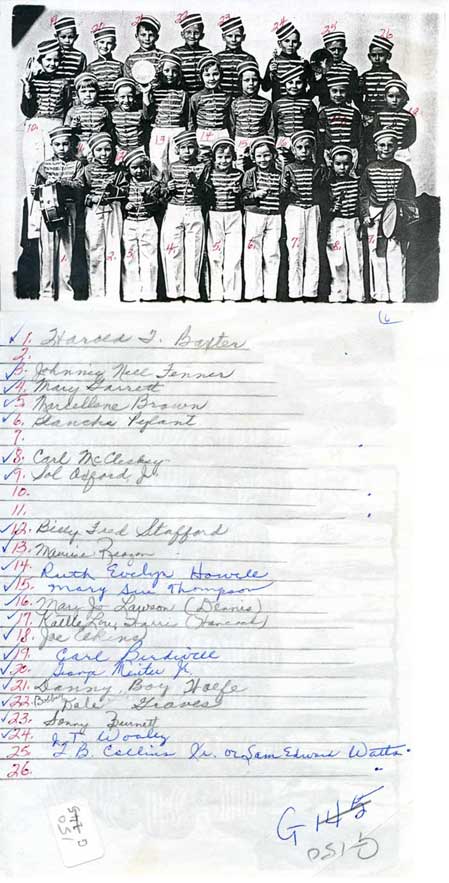 19. 20. 21. 22 23 24 25 26
10. 11. 12 13 14 15 16
1. 2. 3. 4. 5. 6. 7. 8. 9.
6
1. Harold T. Baxter
2.
3. Johnney Neel Fenner
4. Mary Garrett
5. Marcellene Brown
6. Blanche Pylant
7.
8. Carl McCleskey
9. Sol Oxford, Jr.
10.
11.
12. Billy Fred Stafford
13. Maurice Reagan
14. Ruth Evelyn Howell
15. Mary Sue Thompson
16. Mary Jo Lawson (Dennis)
17. Lou Harris (Hancock)
18. Joe Elkins
19. Carl Birdwell
20. Jr
21. Danny Boy Hoefe
22. Bobby Dale Graves
23. Sonny Burnett
24. J.T. Wooley
25. J. B. Collins Jr. or Sam Edward Watts
26.
G 145
G150